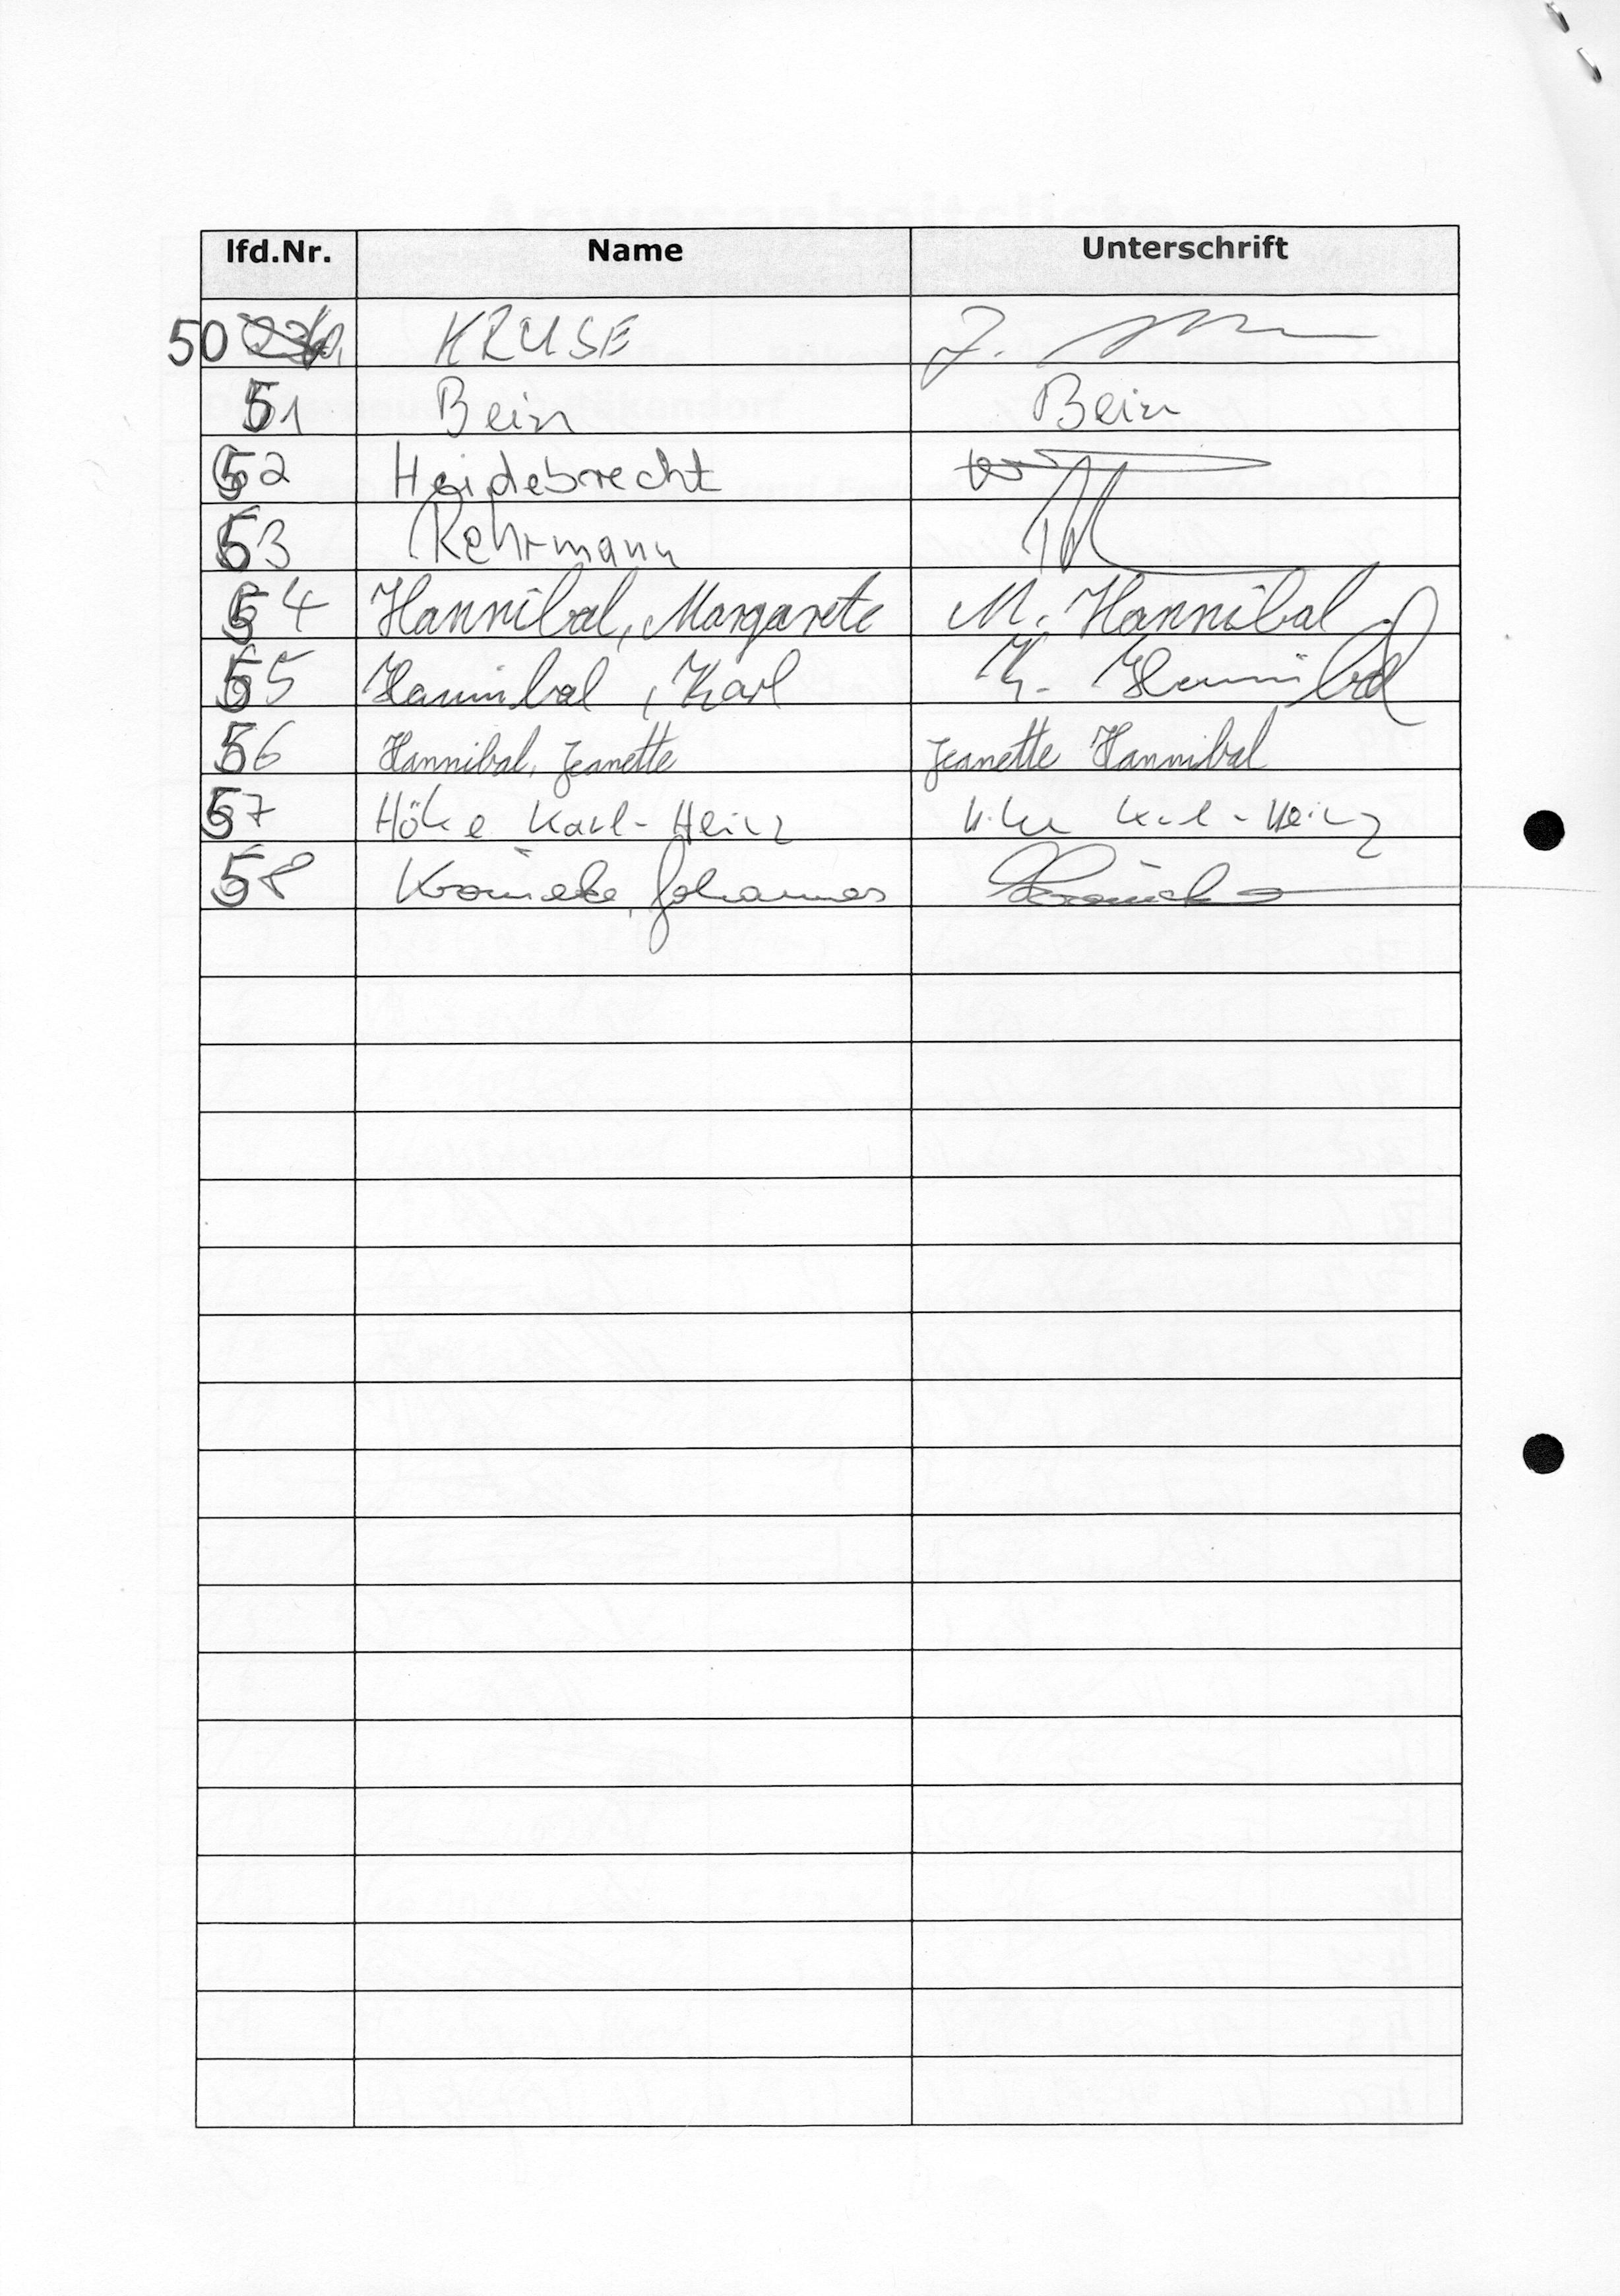 lfd.Nr. Name Unterschrift
50 KRUSE J.
51 Bein Bein
52 Heidebrecht
53 Rehrmann
54 Hannibal, Margarete M. Hannibal
55 Hannibal, Karl K. Hannibal
56 Hannibal, Jeanette Jeanette Hannibal
57 Höke Karl-Heinz Höke Karl-Heinz
58 Johannes